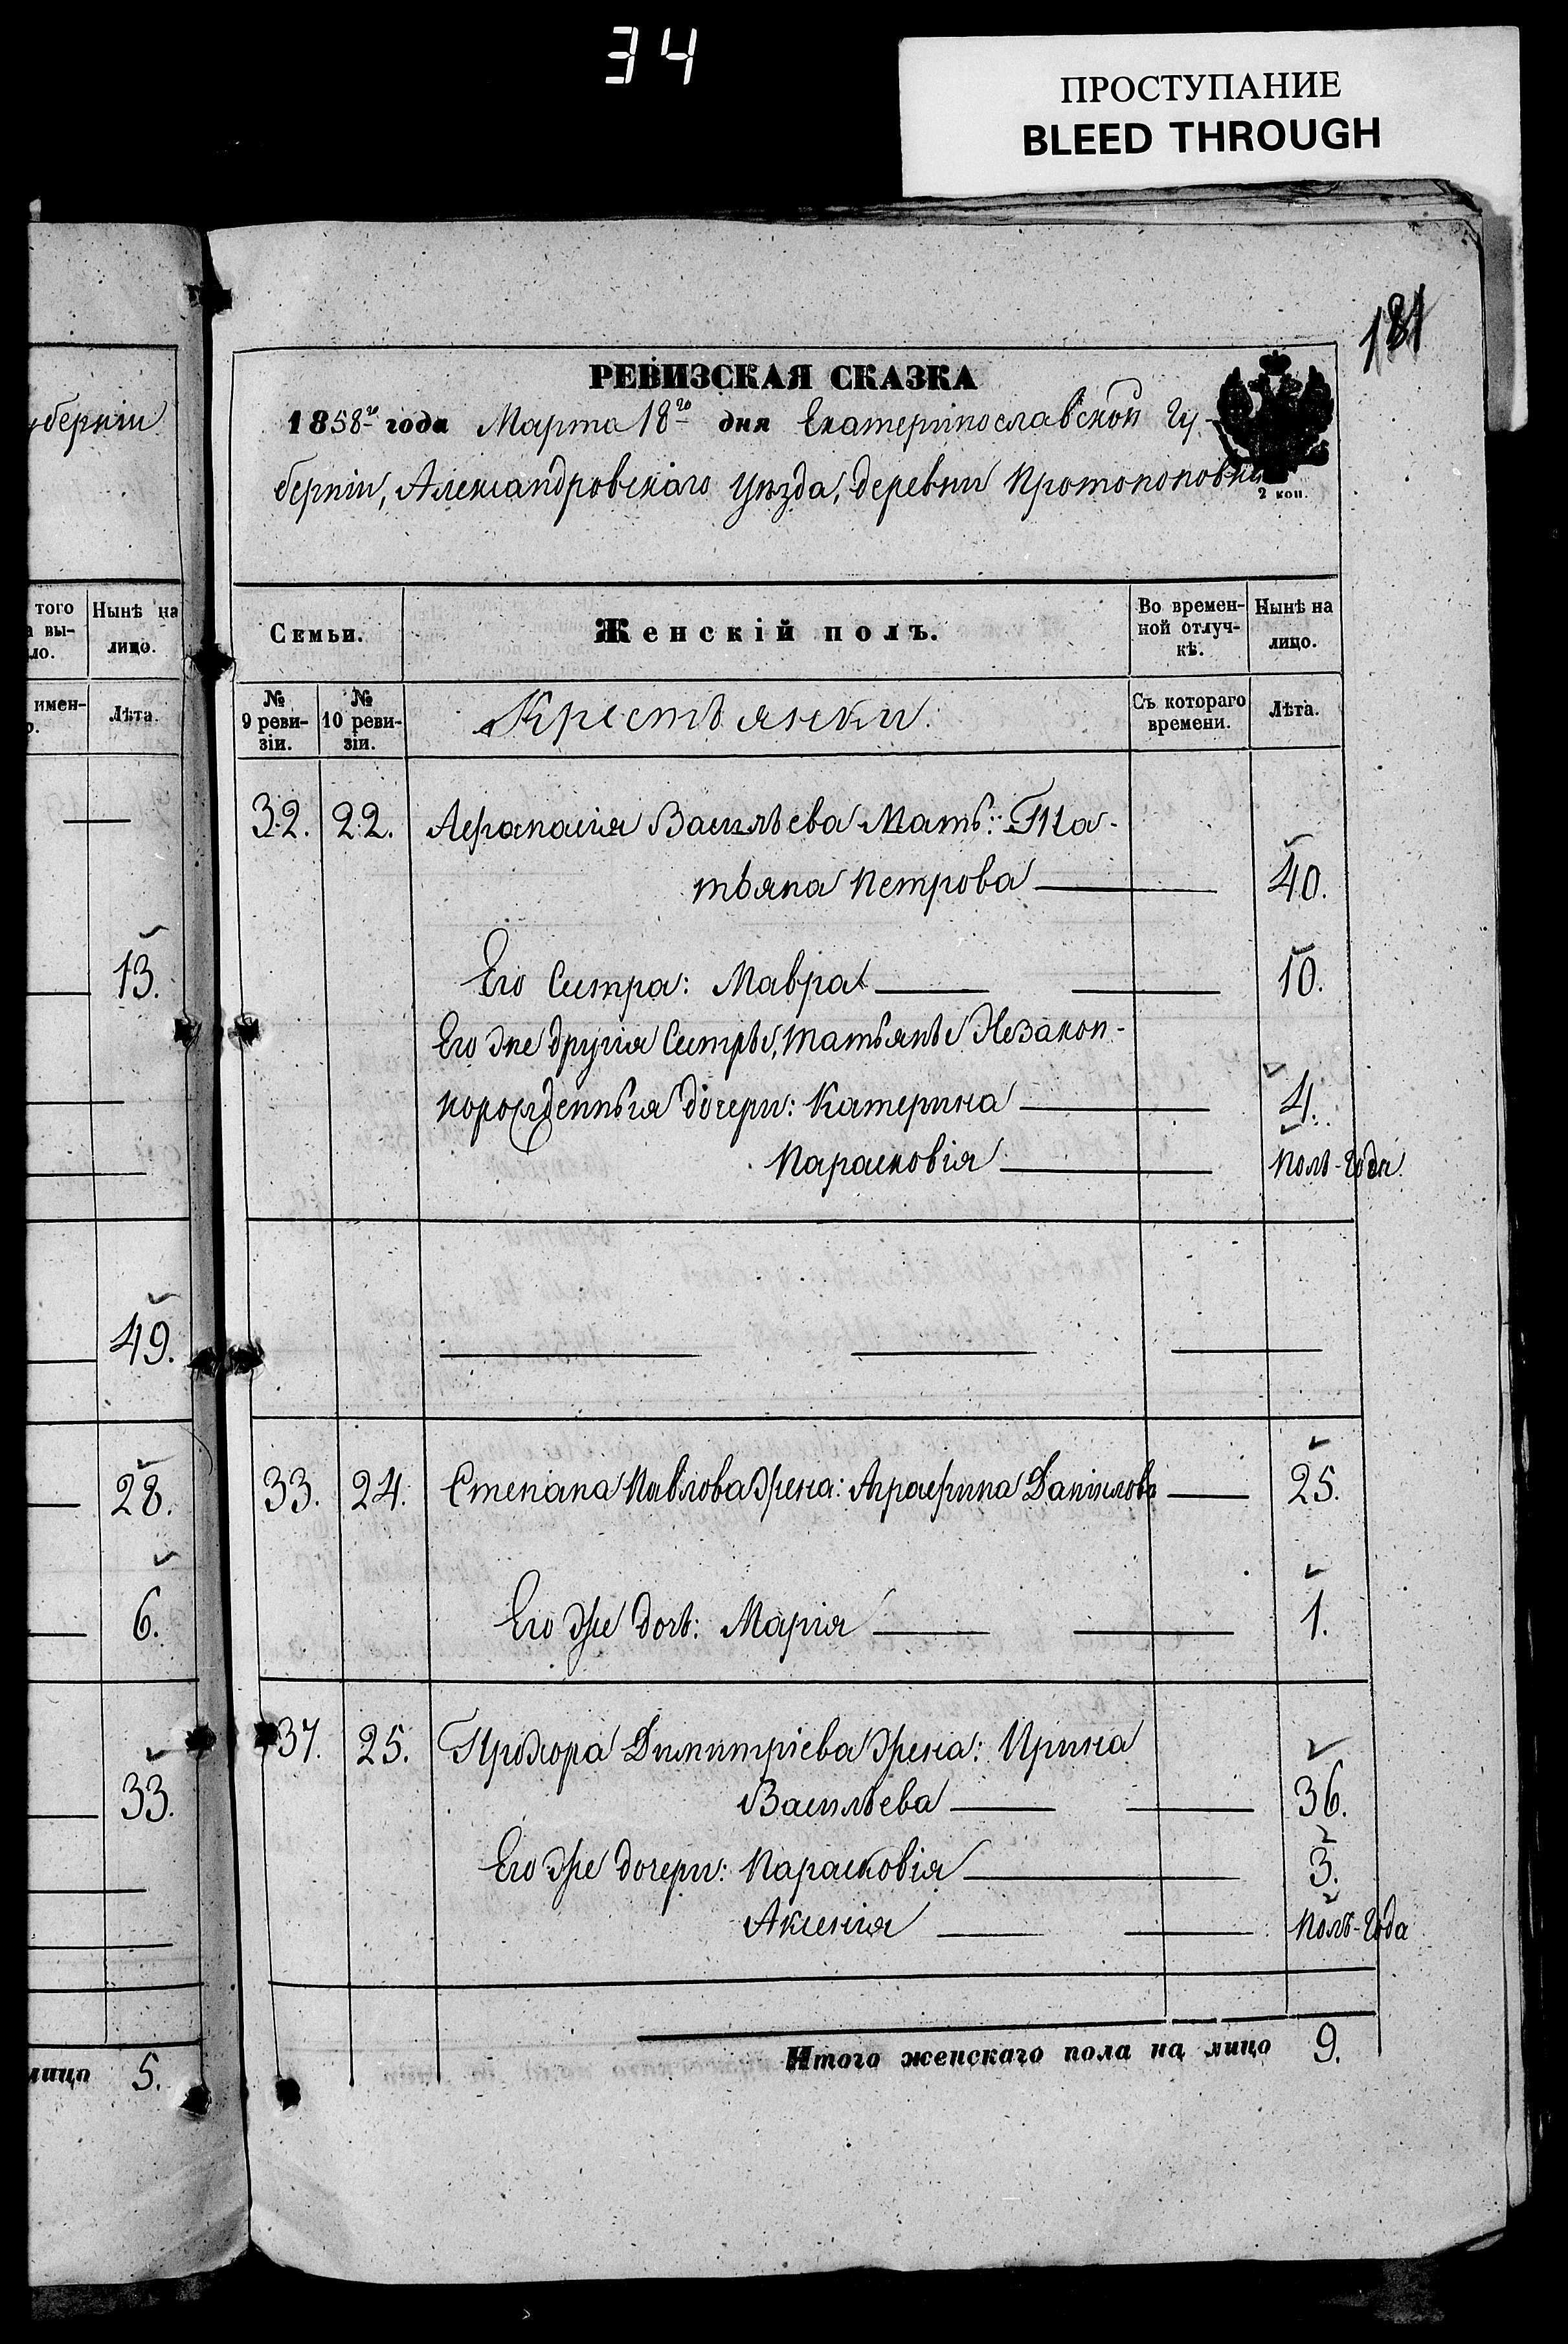 34
ПРОСТУПАНИЕ
BLEED THROUGH
181
РЕВИЗСКАЯ СКАЗКА
1858го года Марта 18го дня Екатеринославской Гу-
берніи, Александровскаго Уѣзда, деревни Протопоповки
2 коп.
Семьи.
Женскій полъ.
Во времен-
ной отлуч-
кѣ.
Нынѣ на
лицо.
№
9 реви-
зіи.
№
10 реви-
зіи.
Крестьянки.
Съ котораго
времени.
Лѣта.
32. 22. Афанасія Васильева Мать: Та-
тьяна Петрова 40.
Его Сестра: Мавра 10.
Его же другія Сестры, Татьяны Незакон-
норожденныя дочери: Катерина 4.
Парасковія Полъ-Года.
33. 24. Степана Павлова Жена: Аграфина Данилова 25.
Его же дочь: Марія 1.
37. 25. Прохора Димитріева Жена: Ирина
Васильева 36.
Его же дочери: Парасковія 3.
Аксенія Полъ-Года
Итого женскаго пола на лицо 9.
уберніи
того
вы-
ло.
Нынѣ на
лицо.
имен-
о.
Лѣта.
13.
49.
28.
6.
33.
лицо 5.